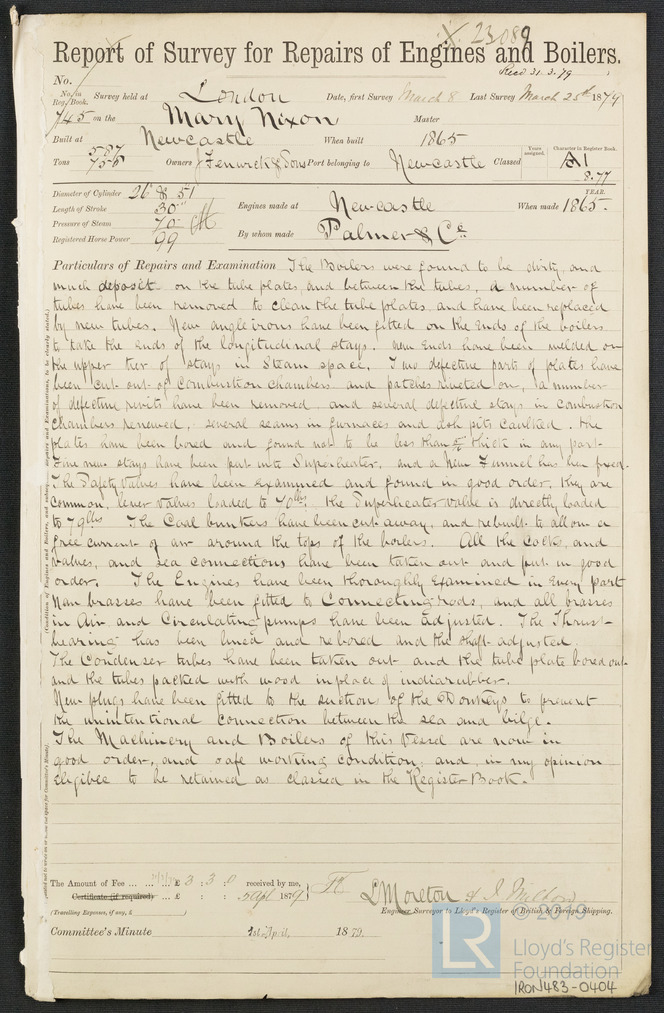 X. 23089
Report of Survey for Repairs of Engines and Boilers.
Recd 31.3.79
No.
No. in Reg. Book. Survey held at London Date, first Survey March 8 Last Survey March 25th 1879
745 on the Mary Nixon Master
Built at Newcastle When built 1865
Tons 587 Owners J Fenwick & Sons Port belonging to Newcastle Classed Years assigned. Character in Register Book. A1
8.77
Diameter of Cylinder 26 & 51 YEAR.
Length of Stroke 30" Engines made at Newcastle When made 1865.
Pressure of Steam 70
Registered Horse Power 99 By whom made Palmer & Co.
Particulars of Repairs and Examination The Boilers were found to be dirty, and
much deposit on the tube plates, and between the tubes, a number of
tubes have been removed to clean the tube plates, and have been replaced
by new tubes. New angle irons have been fitted on the ends of the boilers
to take the ends of the longitudinal stays. New ends have been welded on
the upper tier of stays in Steam space. Two defective parts of plates have
been cut out of Combustion chambers and patches riveted on, a number
of defective rivits have been removed and several defective stays in Combustion
Chambers renewed, several seams in furnaces and ash pits caulked. The
plates have been bored and found not to be less than thick in any part.
new stays have been put into Superheater, and a New Funnel has been fixed.
The Safety Valves have been examined and found in good order, they are
Common, lever valves loaded to 70 lbs. The Superheater Valve is directly loaded
to 79 lbs. The Coal bunkers have been cut away, and rebuilt to allow a
free current of air around the tops of the boilers. All the Cocks, and
valves, and sea connections have been taken out and put in good
order. The Engines have been thoroughly Examined in Every part
New brasses have been fitted to Connecting rods, and all brasses
in Air and Circulating pumps have been adjusted. The Thrust
bearing has been lined and rebored and the shaft adjusted.
The Condenser tubes have been taken out and the tube plate bored out
and the tubes packed with wood in place of indiarubber.
New plugs have been fitted to the suctions of the Donkeys to prevent
the unintentional connection between the sea and bilge.
The Machinery and Boilers of this Vessel are now in
good order, and safe working condition, and in my opinion
Eligible to be retained as classed in the Register Book.
The Amount of Fee £ 3 : 3 : 0 received by me,
Certificate (if required) £ : : 5 Apl 1879
(Travelling Expenses, if any, £ )
L Moreton
Engineer Surveyor to Lloyd's Register of British & Foreign Shipping.
Committee's Minute 1st April 1879.
LR
© 2019
Lloyd's Register
Foundation
IRON483-0404